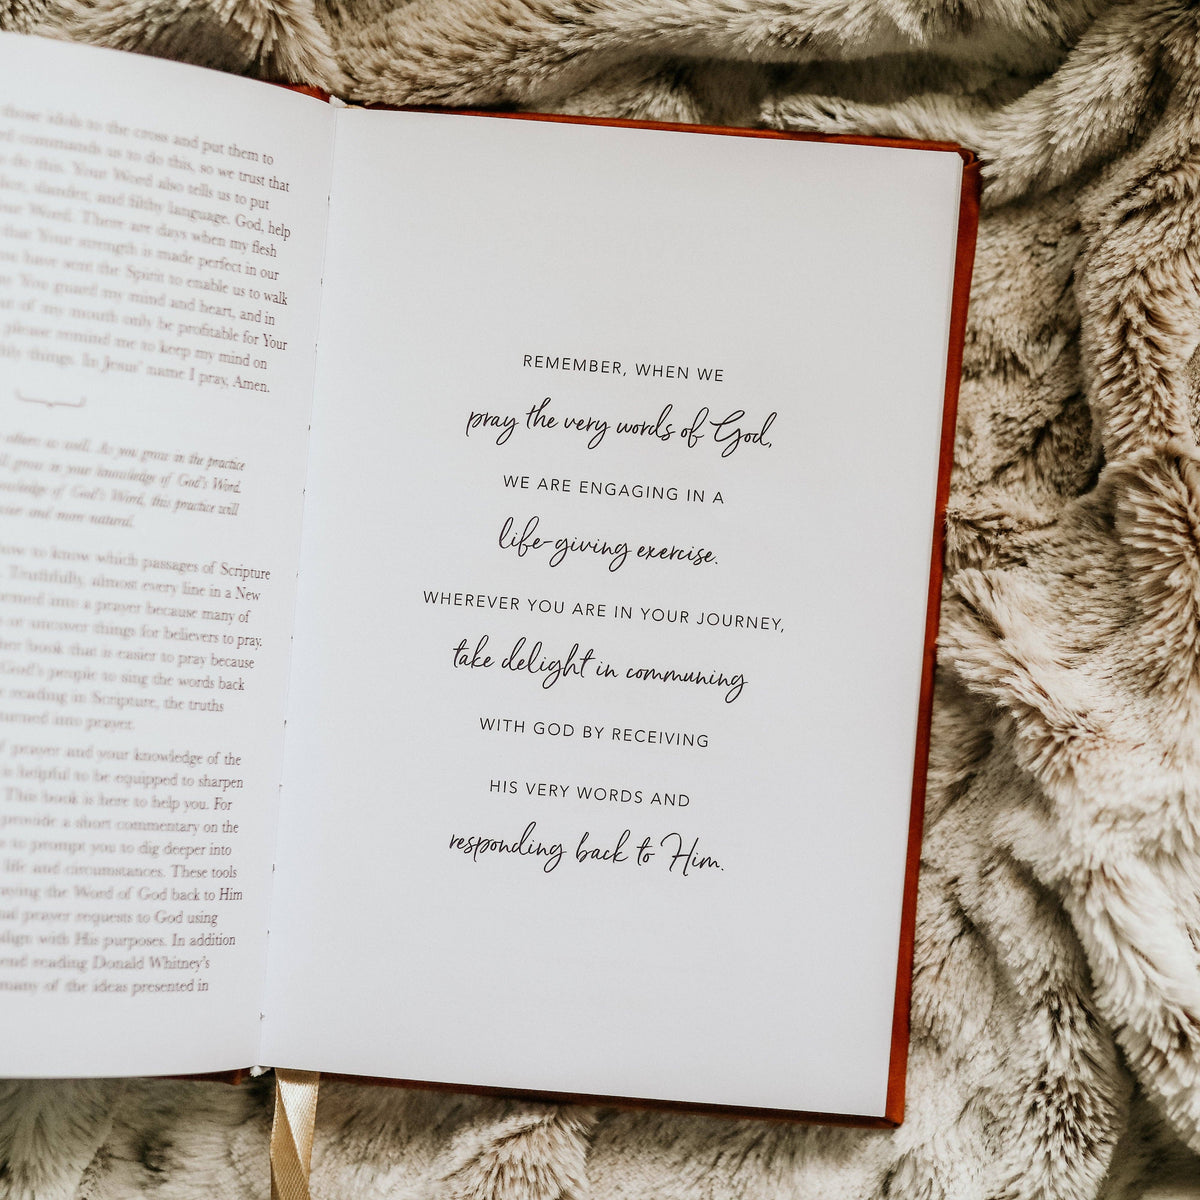 those idols to the cross and put them to
commands us to do this, so we trust that
do this. Your Word also tells us to put
slander, and filthy language. God, help
your Word. There are days when my flesh
that Your strength is made perfect in our
have sent the Spirit to enable us to walk
You guard my mind and heart, and in
of my mouth only be profitable for Your
please remind me to keep my mind on
things. In Jesus' name I pray, Amen.
others as well. As you grow in the practice
grow in your knowledge of God's Word.
knowledge of God's Word, this practice will
and more natural.
how to know which passages of Scripture
Truthfully, almost every line in a New
turned into a prayer because many of
or uncover things for believers to pray.
book that is easier to pray because
God's people to sing the words back
reading in Scripture, the truths
turned into prayer.
prayer and your knowledge of the
is helpful to be equipped to sharpen
This book is here to help you. For
provide a short commentary on the
to prompt you to dig deeper into
life and circumstances. These tools
praying the Word of God back to Him
prayer requests to God using
align with His purposes. In addition
reading Donald Whitney's
many of the ideas presented in
REMEMBER, WHEN WE
pray the very words of God,
WE ARE ENGAGING IN A
life-giving exercise.
WHEREVER YOU ARE IN YOUR JOURNEY,
take delight in communing
WITH GOD BY RECEIVING
HIS VERY WORDS AND
responding back to Him.